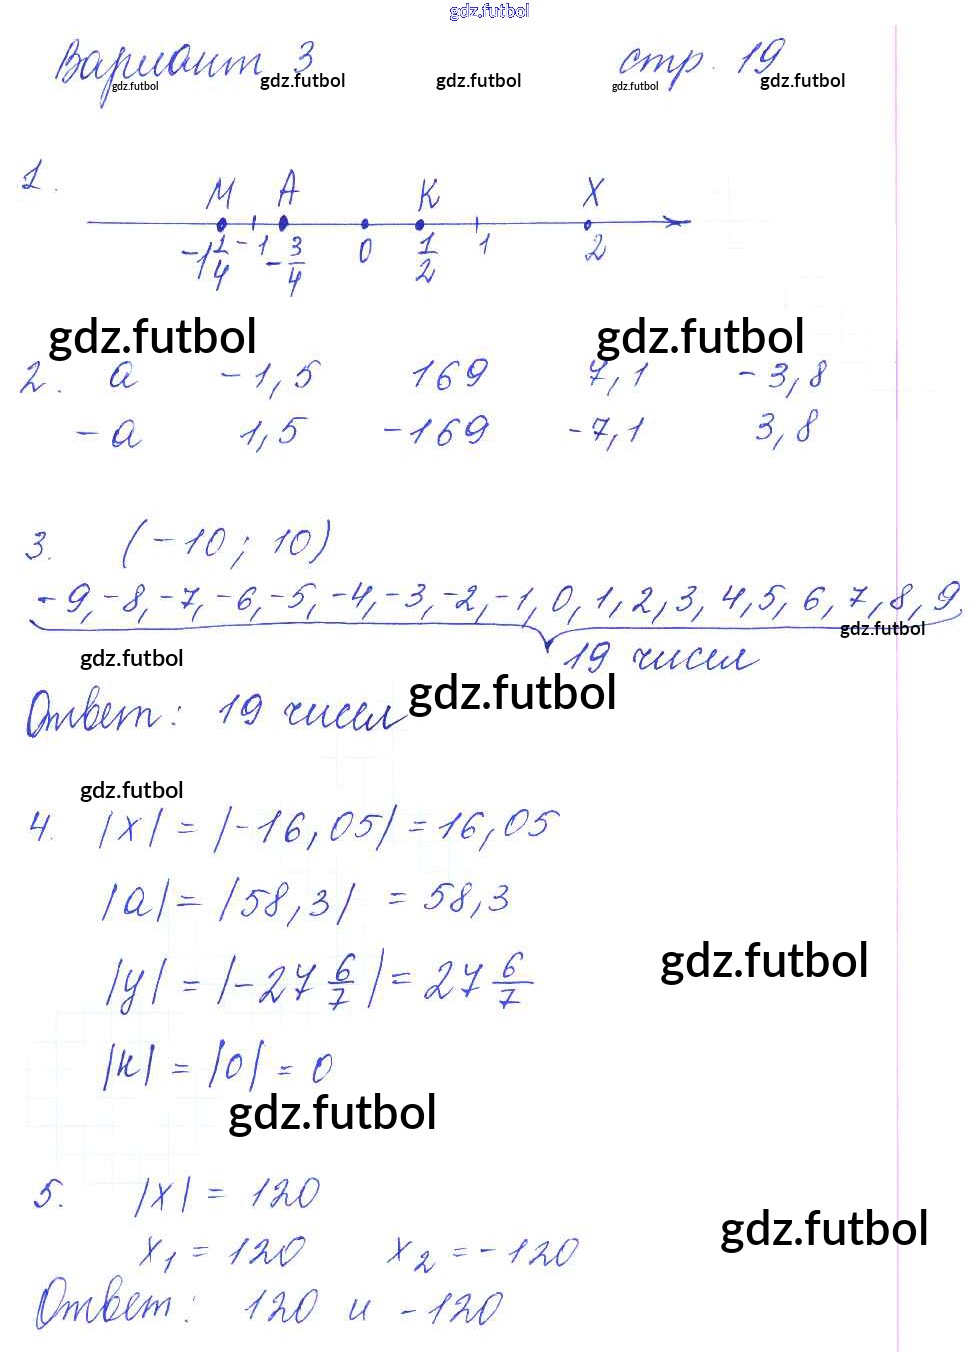 gdz.futbol
Вариант 3 стр. 19
gdz.futbol gdz.futbol gdz.futbol gdz.futbol gdz.futbol
1.
M A K X
-1 1/4 -1 -3/4 0 1/2 1 2
gdz.futbol gdz.futbol
2. a -1,5 169 7,1 -3,8
-a 1,5 -169 -7,1 3,8
3. (-10; 10)
-9,-8,-7,-6,-5,-4,-3,-2,-1,0,1,2,3,4,5,6,7,8,9,
gdz.futbol
gdz.futbol 19 чисел
Ответ: 19 чисел gdz.futbol
gdz.futbol
4. |x| = |-16,05| = 16,05
|a| = |58,3| = 58,3
gdz.futbol
|y| = |-27 6/7| = 27 6/7
|к| = |0| = 0
gdz.futbol
5. |x| = 120
gdz.futbol
x₁ = 120 x₂ = -120
Ответ: 120 и -120